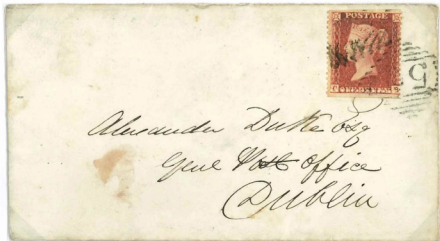 POSTAGE
ONE PENNY
5
Alexander Duke Esq
Genl Post Office
Dublin